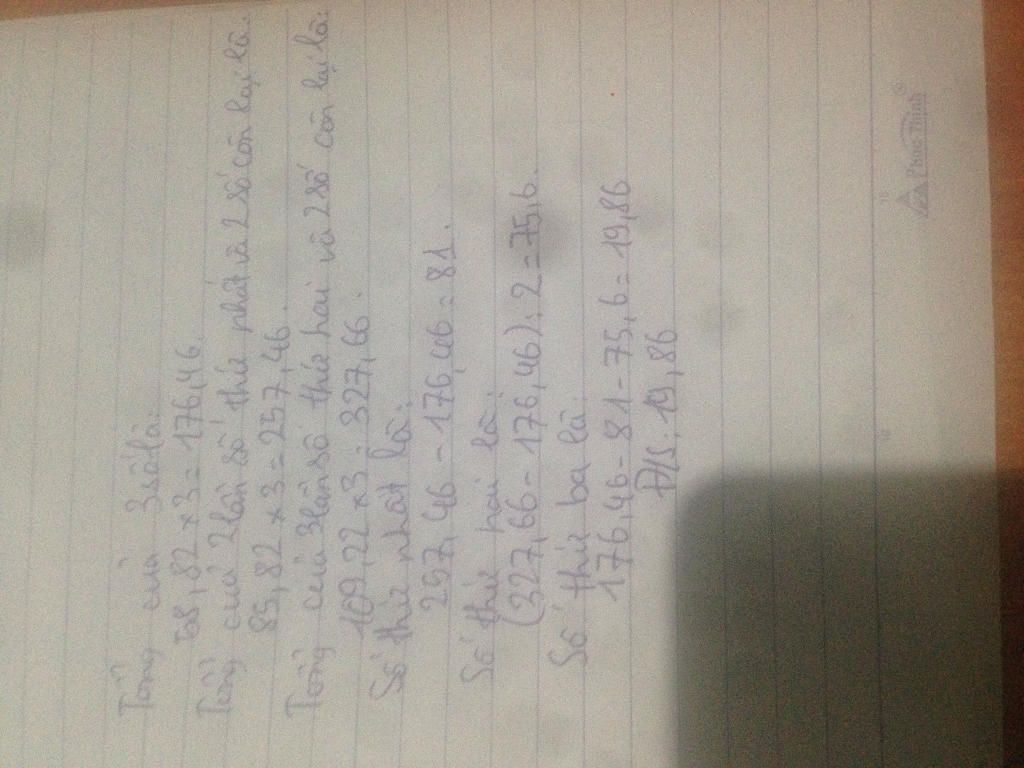 Tổng của 3 số là:
58,82 x 3 = 176,46.
Tổng của 2 lần số thứ nhất và 2 số còn lại là:
85,82 x 3 = 257,46.
Tổng của 3 lần số thứ hai và 2 số còn lại là:
109,22 x 3 = 327,66.
Số thứ nhất là:
257,46 - 176,46 = 81.
Số thứ hai là:
(327,66 - 176,46) : 2 = 75,6.
Số thứ ba là:
176,46 - 81 - 75,6 = 19,86
Đ/S: 19,86